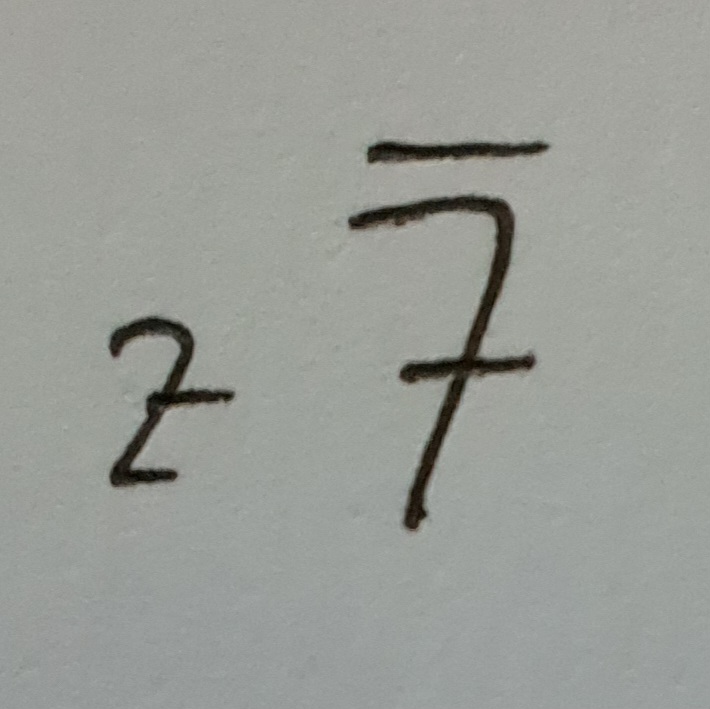 z 7̅